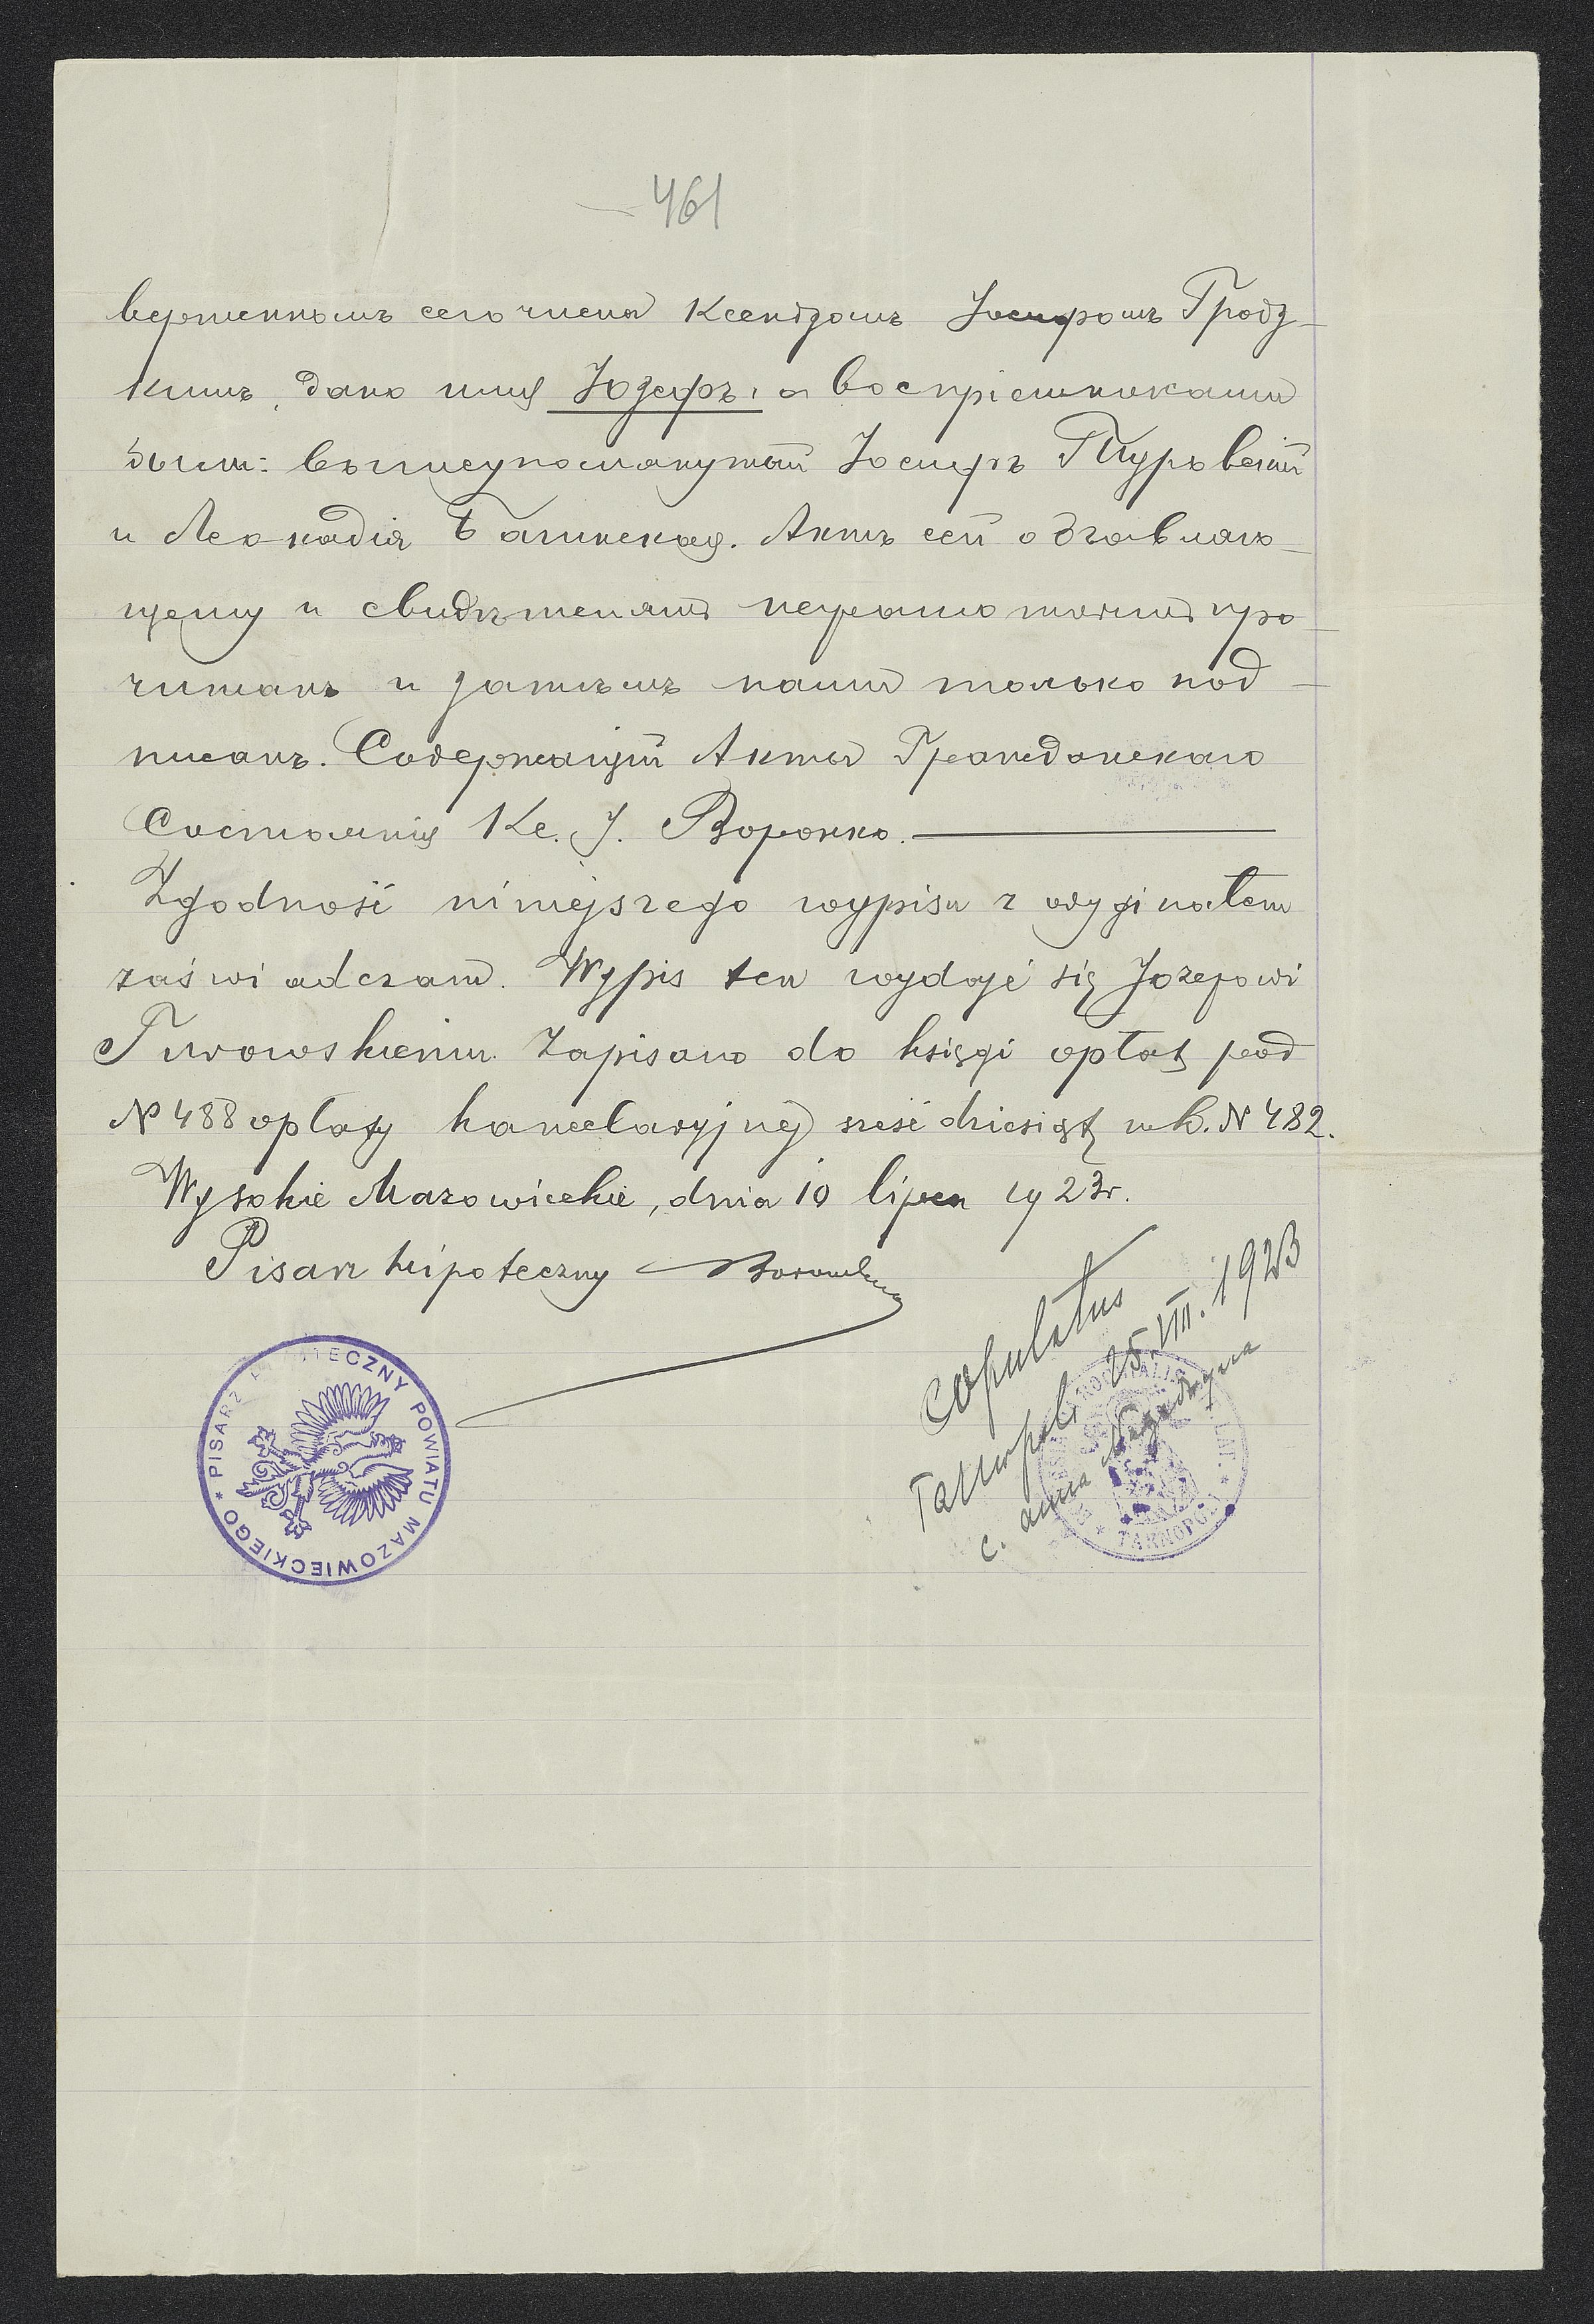 461
вершенномъ сего числа Ксендзомъ Іосифомъ Гродз-
кимъ, дано имя Юзефъ, а воспріемниками
были: вышеупомянутый Іосифъ Туровскій
и Леокадія Багинская. Актъ сей объявляю-
щему и свидѣтелямъ неграмотнымъ про-
читанъ и затѣмъ нами только под-
писанъ. Содержащій Акты Гражданскаго
Состоянія Кс. І. Воронко.
Zgodność niniejszego wypisu z oryginałem
zaświadczam. Wypis ten wydaje się Józefowi
Turowskiemu. Zapisano do księgi opłat pod
№ 488 opłaty kancelaryjnej sześćdziesiąt mk. N 482.
Wysokie Mazowieckie, dnia 10 lipca 1923r.
Pisarz hipoteczny
copulatus
Tarnopoli 25.VIII.1923
c. Anna
PISARZ HIPOTECZNY POWIATU MAZOWIECKIEGO
LAT. * TARNOPOLI *